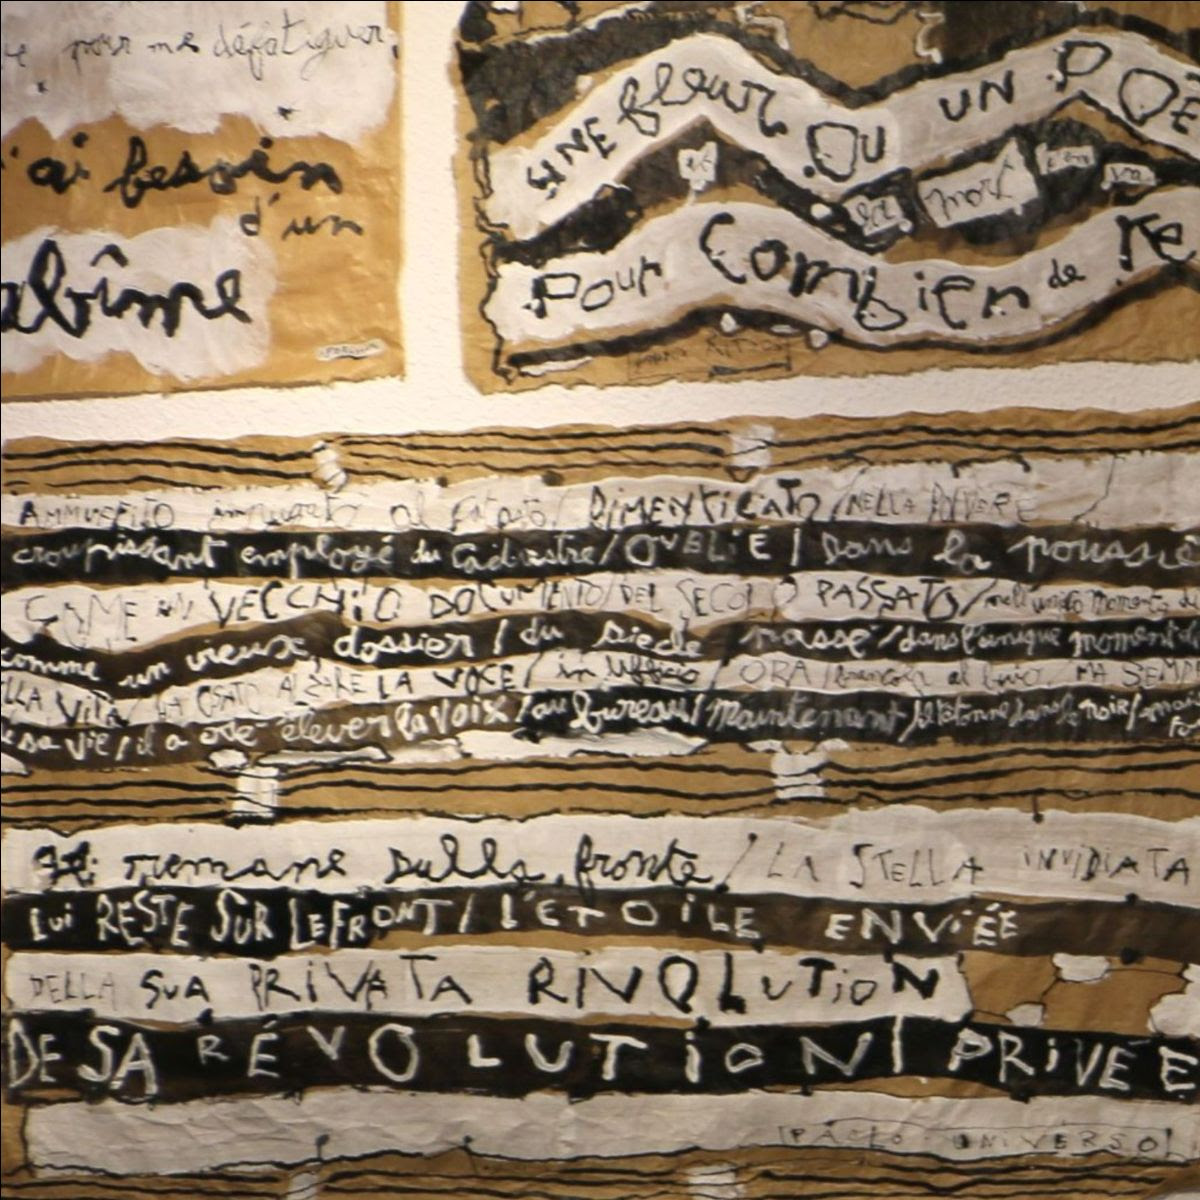 pour me défatiguer,
'ai besoin
d'un
abîme
UNE fleur OU UN POÈ
et
la mort
va
Pour Combien de re
AMMUFFITO al DIMENTICATO / NELLA POLVERE
croupissant employé du Cadastre / OUBLIÉ / Dans la poussiè
COME UN VECCHIO DOCUMENTO / DEL SECOLO PASSATO / nell'unico momento de
comme un vieux dossier / du siècle passé / dans l'unique moment d
LLA VITA / HA OSATO ALZARE LA VOCE / in ufficio / ORA / brancola al buio / MA SEMM
e sa vie / il a osé élever la voix / au bureau / Maintenant / il tâtonne dans le noir / mais
gli rimane sulla fronte / LA STELLA INVIDIATA
LUi RESTE SUR LE FRONT / L'ÉTOILE ENViÉE
DELLA SUA PRiVATA RIVOLUTiON
DE SA RÉVOLUTiON PRiVÉE
PAOLO UNIVERSO